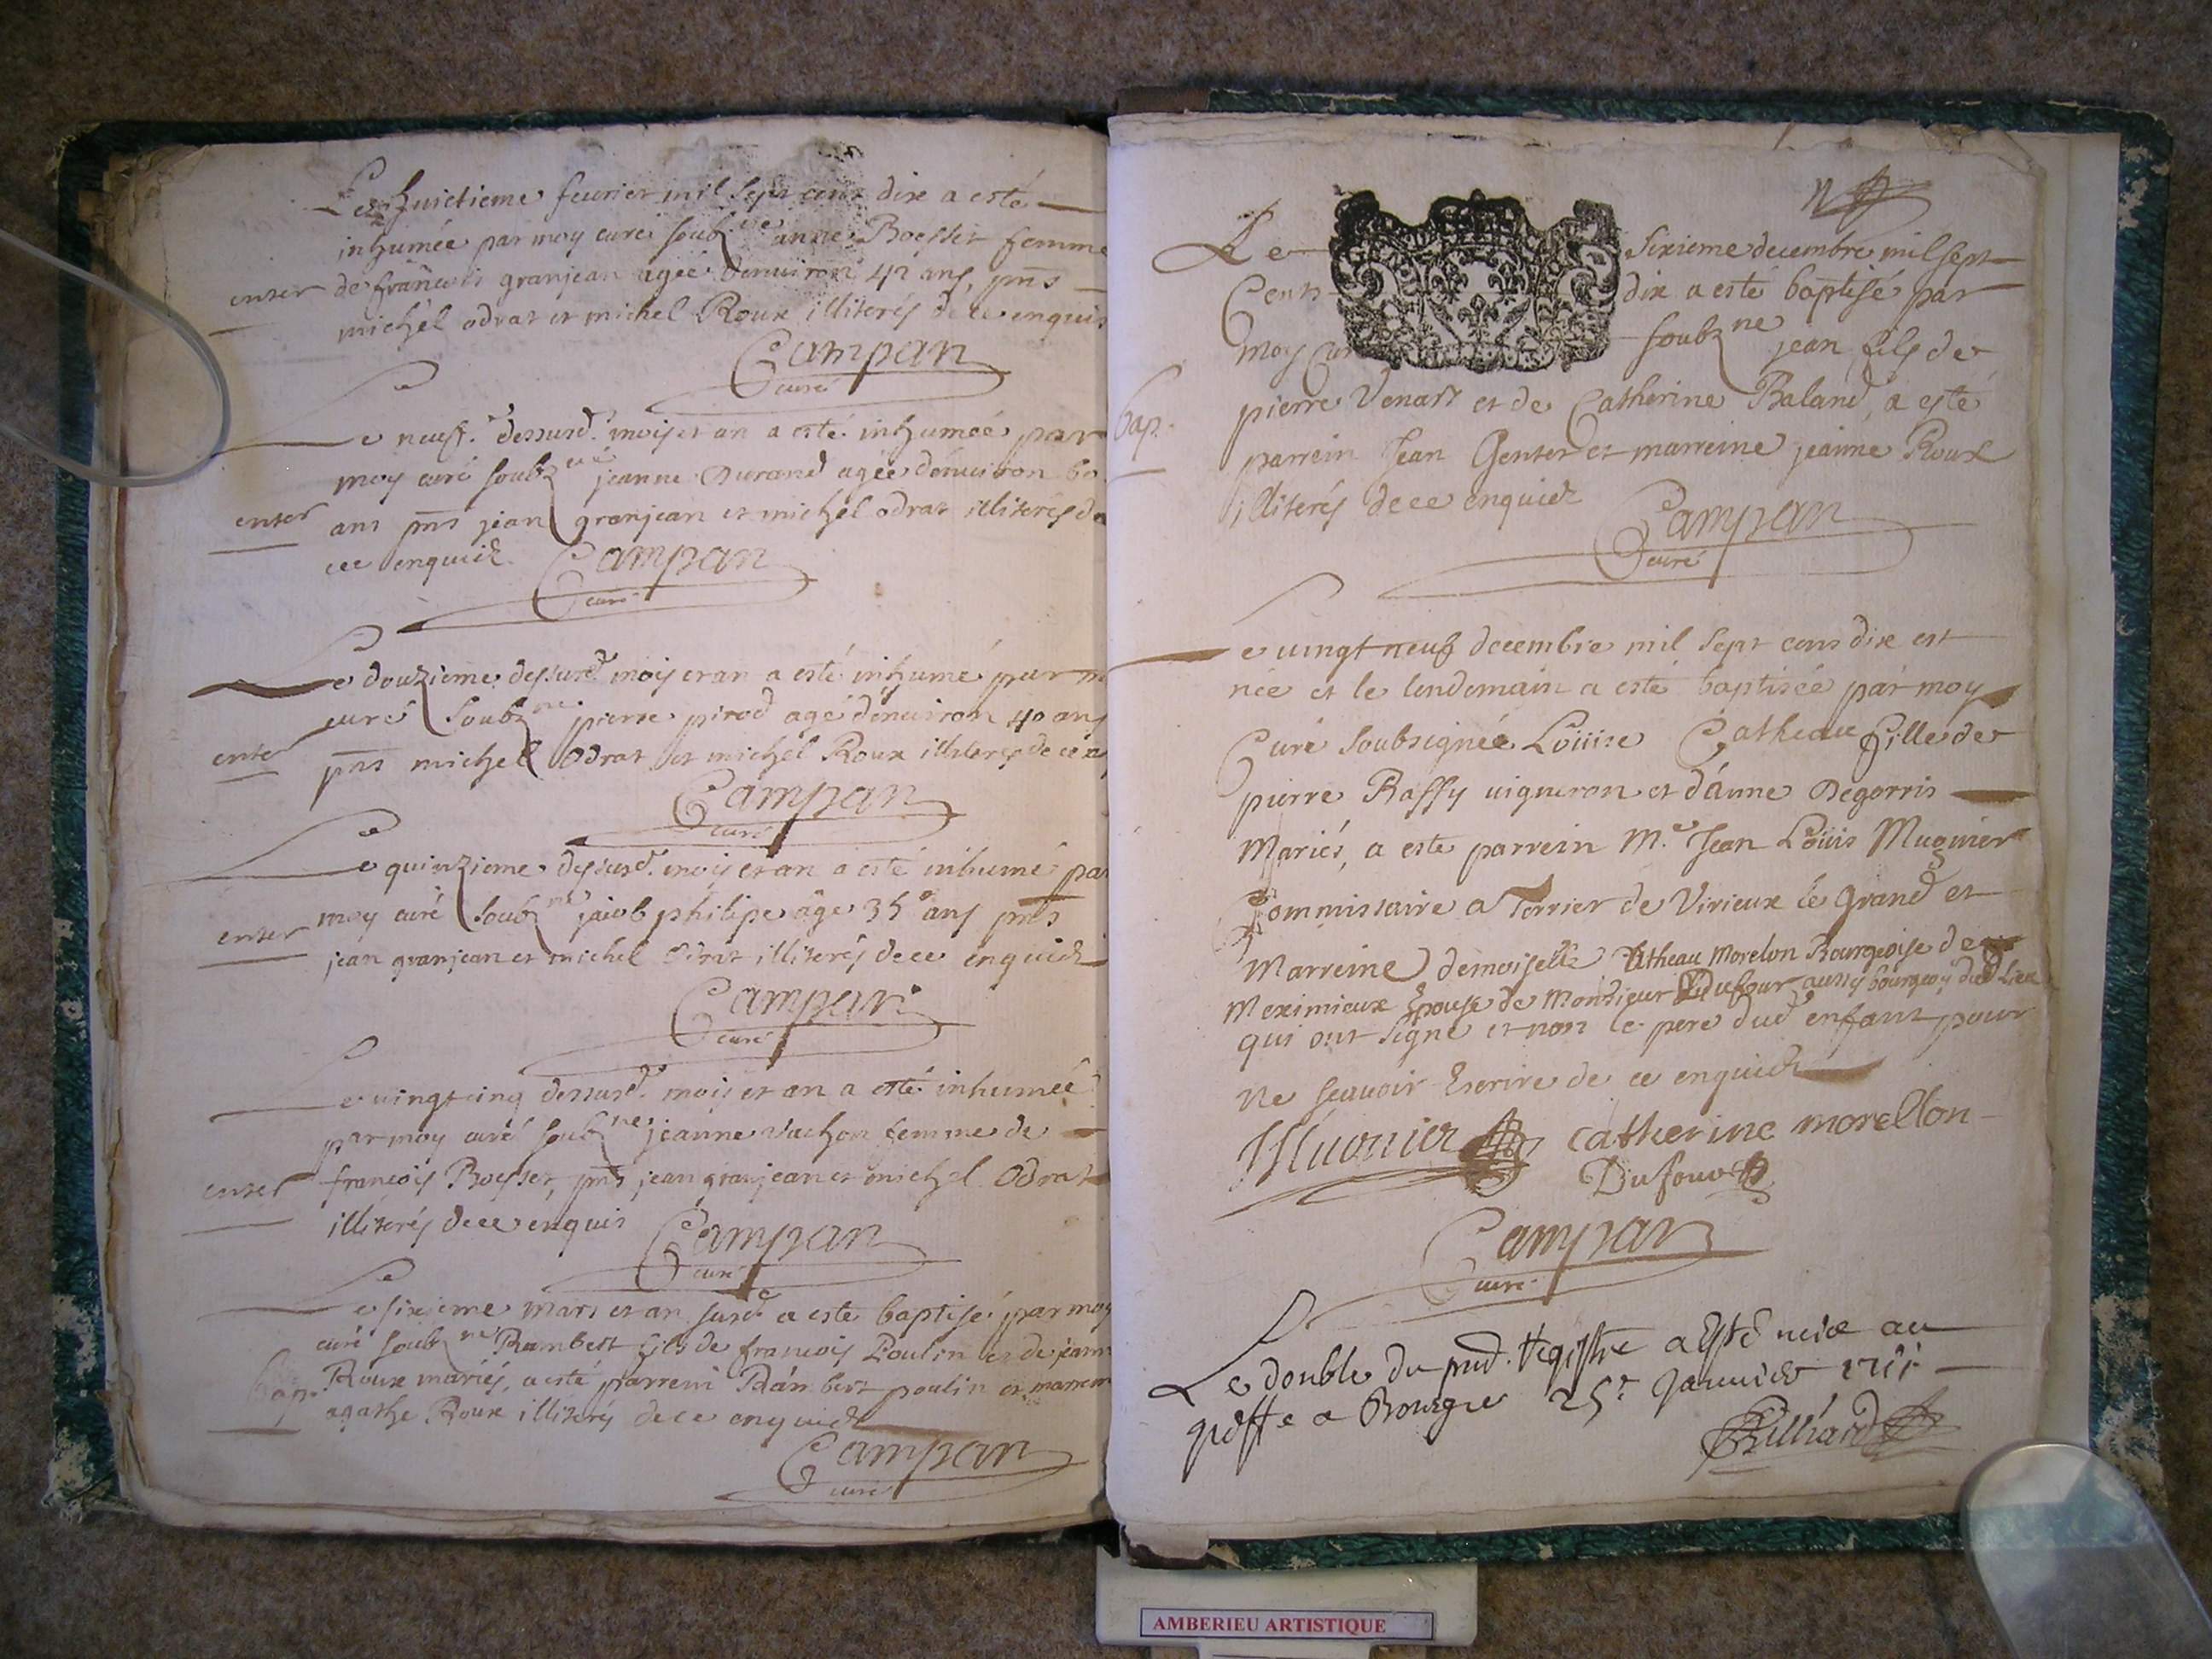 Le huictieme feurier mil sept cent dix a esté
inhumée par moy curé soubz.né anne Boesset femme
enter de francois granjean agée denuiron 42 ans, pns
michel odrat et michel Roux illiterés de ce enquis
Campan
curé
Le neuf.e dessusd. mois et an a esté inhumée par
moy curé soubz.né jeanne Durand agée denuiron
enter ans pns jean granjean et michel odrat illiterés de
ce enquid
Campan
curé
Le douzieme dessusd. mois et an a esté inhumé par
curé soubz.né pierre pirod agé denuiron 40 ans
enter pns michel Odrat et michel Roux illiterés de ce
Campan
curé
Le quinzieme dessusd. mois et an a esté inhumé par
moy curé soubz.né jacob philipe age 35 ans pns
enter jean granjean et michel Odrat illiterés de ce enquid
Campan
curé
Le vingtcinq dessusd. mois et an a esté inhumée
par moy curé soubz.né jeanne vachon femme de
enter francois Boesset, pns jean granjean et michel Odrat
illiterés de ce enquis
Campan
curé
Le sixieme mars et an susd a esté baptisé par moy
curé soubz.né Rambert fils de francois Poulin et de jeanne
bap. Roux mariés, a esté parrein Rambert poulin et marreine
agathe Roux illiterés de ce enquid
Campan
curé
Le sixieme decembre mil sept
Cents dix a esté baptisé par
moy Curé soubz.né jean fils de
bap. pierre Venart et de Catherine Baland, a esté
parrein Jean Genter et marreine jeanne Roux
illiterés de ce enquid
Campan
curé
Le uingt neuf decembre mil sept cens dix est
née et le lendemain a esté baptisée par moy
Curé soubsignée Loüise Catheau fille de
pierre Raffy uigneron et d'anne Degorris
Mariés, a este parrein M.e Jean Loüis Mugnier
Commissaire a Terrier de Virieux le grand et
Marreine demoiselle Catheau Morelon Bourgeoise de
Meximieux Epouse de Monsieur Dufour aussy bourgeois dud Lieu
qui ont signé et non le pere dud enfant pour
ne scauoir Escrire de ce enquid
Mugnier catherine morellon
Dufour
Campan
curé
Le double du pnd. Registre a Esté mis au
greffe a Bourg le 25.e Januier 1711
AMBERIEU ARTISTIQUE